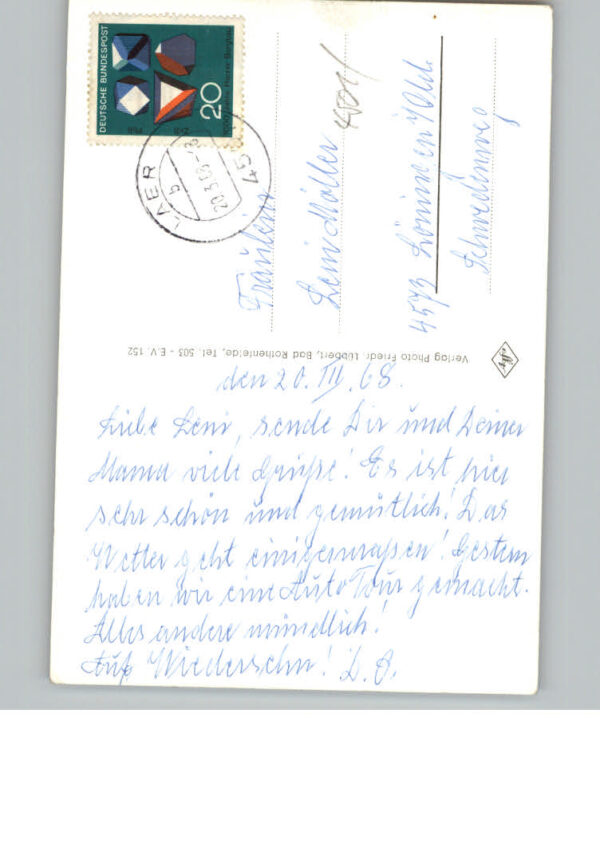 DEUTSCHE BUNDESPOST
20
LAER
b
20.3.68
45
Fräulein
Leni Möller
4573 Löningen i/Old.
Schwedenweg
Verlag Photo Friedr. Lübbert, Bad Rothenfelde, Tel. 503 - E.V. 152
den 20. III. 68.
Liebe Leni, sende Dir und Deiner
Mama viele Grüße! Es ist hier
sehr schön und gemütlich! Das
Wetter geht einigermaßen! Gestern
haben wir eine Auto Tour gemacht.
Alles andere mündlich!
Auf Wiedersehn! D. O.